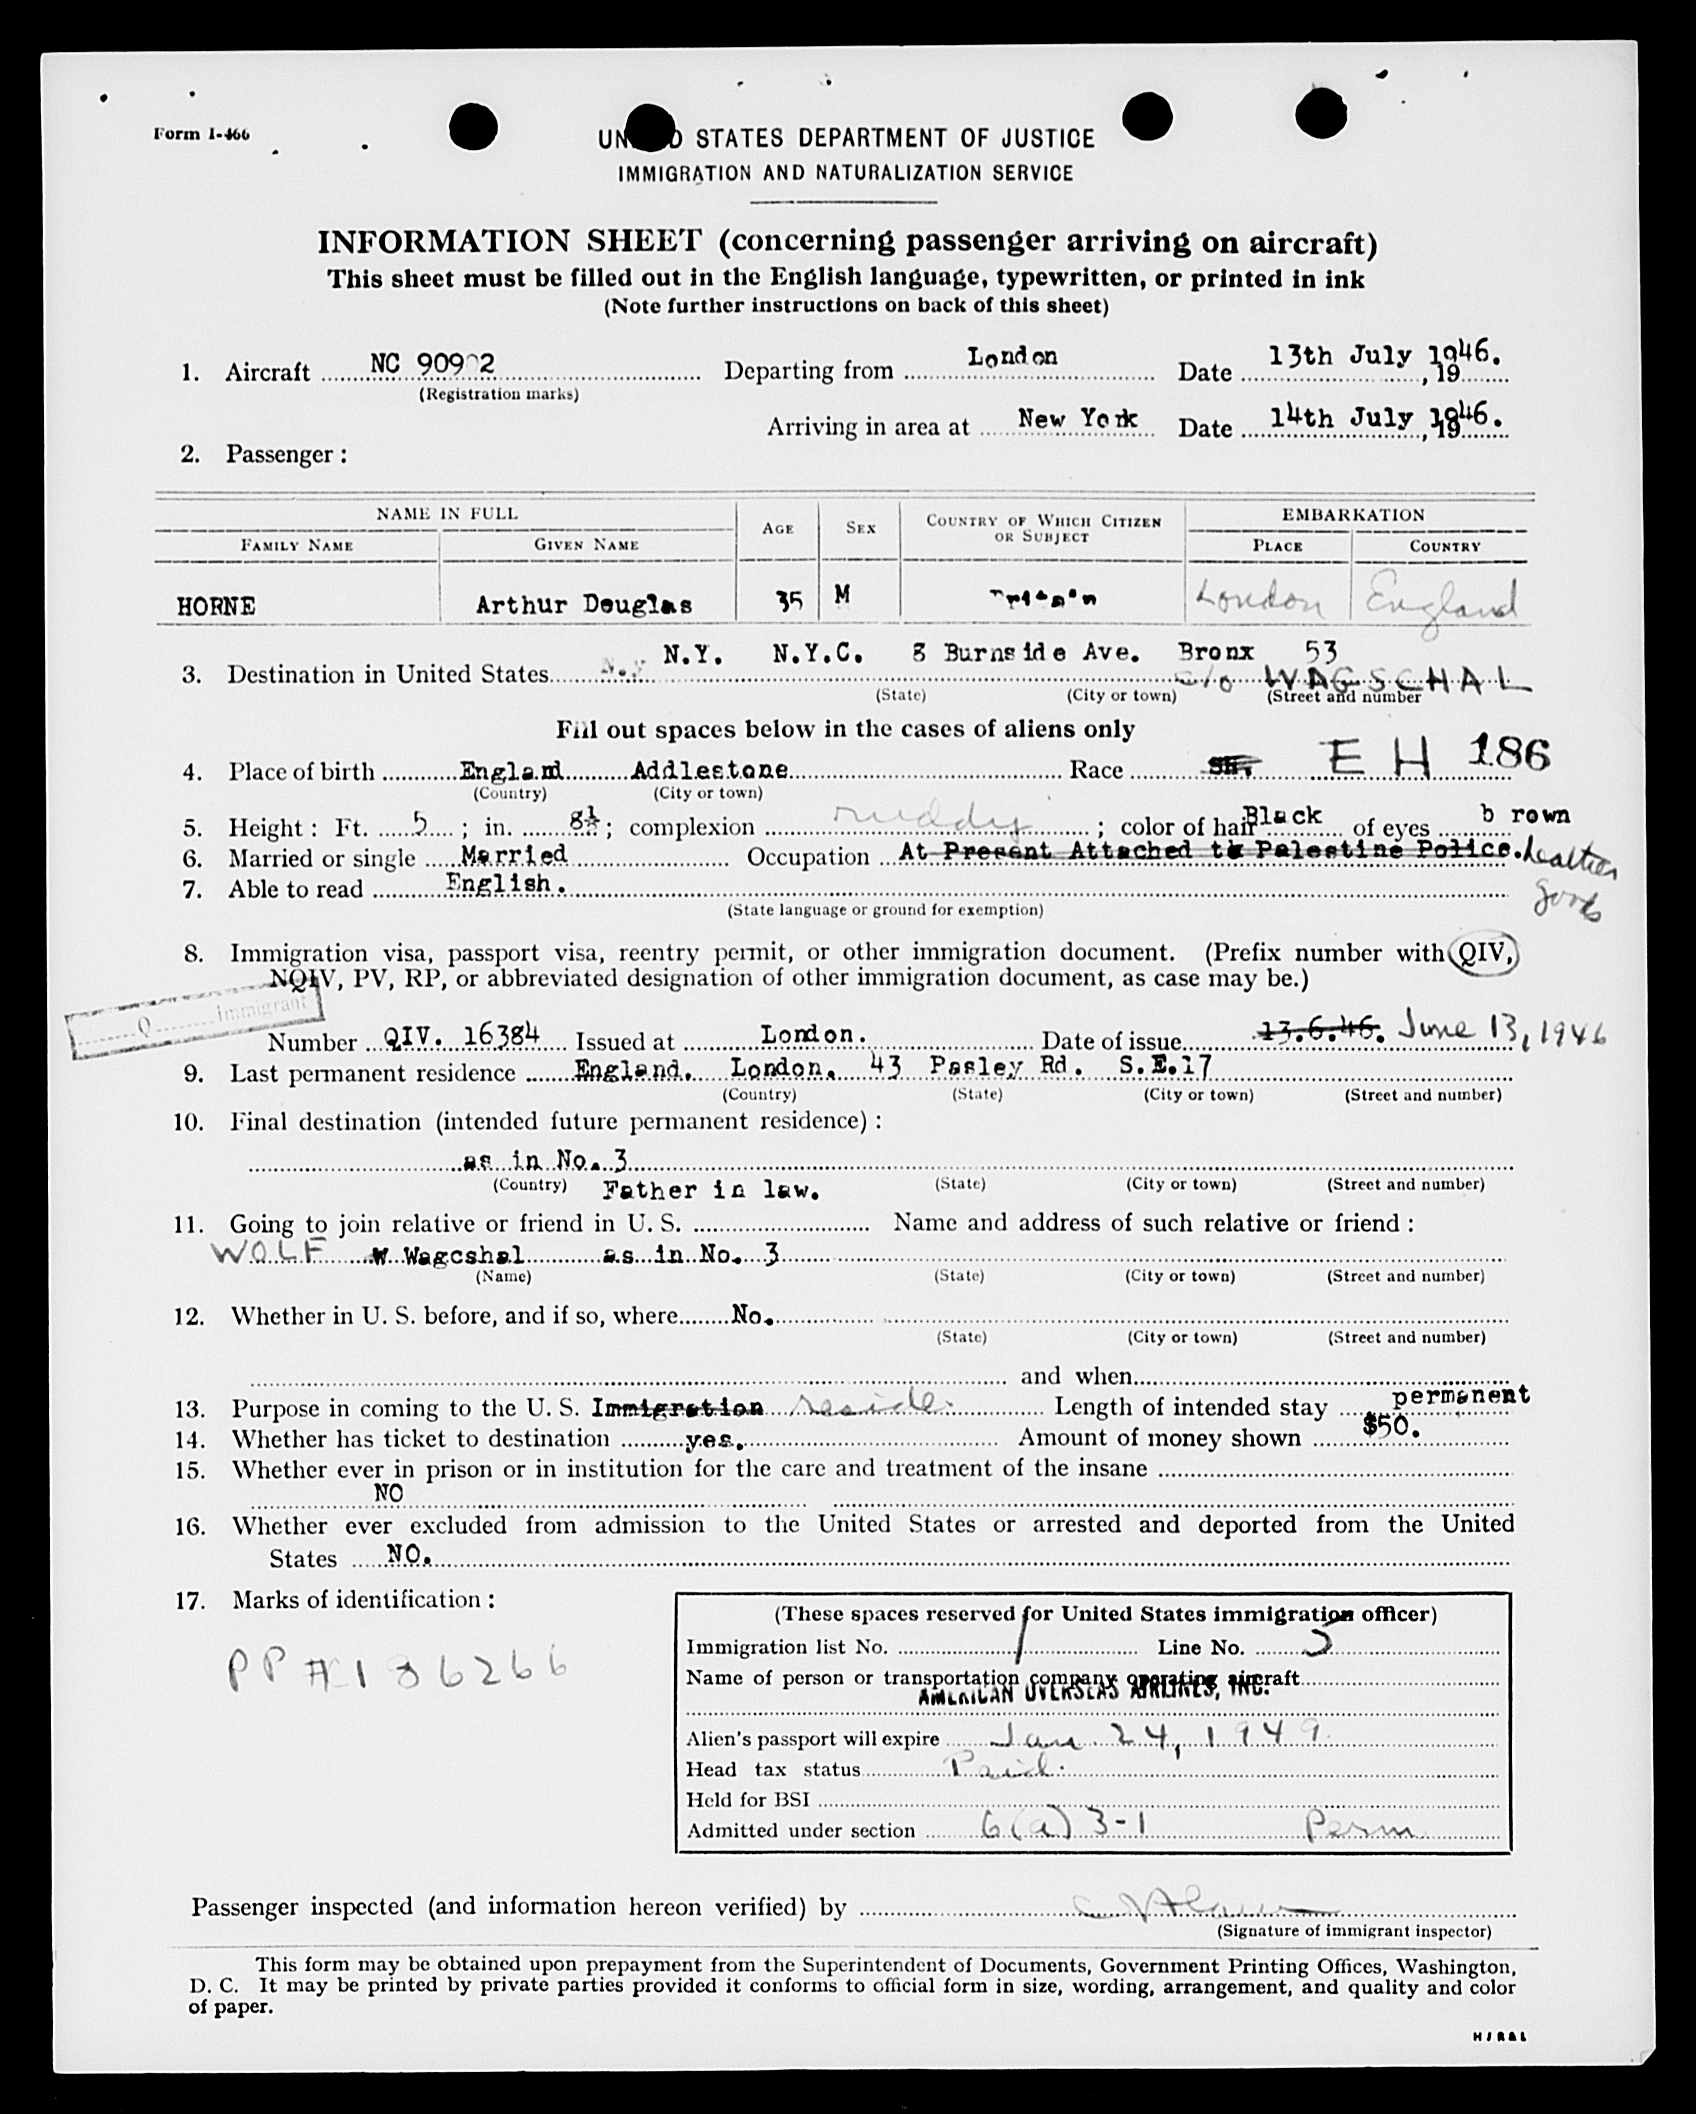 Form I-466
UNITED STATES DEPARTMENT OF JUSTICE
IMMIGRATION AND NATURALIZATION SERVICE
INFORMATION SHEET (concerning passenger arriving on aircraft)
This sheet must be filled out in the English language, typewritten, or printed in ink
(Note further instructions on back of this sheet)
1. Aircraft NC 90902 Departing from London Date 13th July 1946. , 19
(Registration marks)
Arriving in area at New York Date 14th July 1946. , 19
2. Passenger :
NAME IN FULL AGE SEX COUNTRY OF WHICH CITIZEN OR SUBJECT EMBARKATION
FAMILY NAME GIVEN NAME PLACE COUNTRY
HORNE Arthur Douglas 35 M London England
N.Y. N.Y.C. 8 Burnside Ave. Bronx 53
3. Destination in United States N.Y c/o WAGSCHAL
(State) (City or town) (Street and number)
Fill out spaces below in the cases of aliens only
4. Place of birth England Addlestone Race EH 186
(Country) (City or town)
5. Height : Ft. 5 ; in. 8½ ; complexion ruddy ; color of hair Black of eyes brown
6. Married or single Married Occupation At Present Attached to Palestine Police. leather goods
7. Able to read English.
(State language or ground for exemption)
8. Immigration visa, passport visa, reentry permit, or other immigration document. (Prefix number with QIV,
NQIV, PV, RP, or abbreviated designation of other immigration document, as case may be.)
Q Immigrant
Number QIV. 16384 Issued at London. Date of issue 13.6.46. June 13, 1946
9. Last permanent residence England. London. 43 Pasley Rd. S.E.17
(Country) (State) (City or town) (Street and number)
10. Final destination (intended future permanent residence) :
as in No. 3
(Country) Father in law. (State) (City or town) (Street and number)
11. Going to join relative or friend in U. S. Name and address of such relative or friend :
WOLF W Wagcshal as in No. 3
(Name) (State) (City or town) (Street and number)
12. Whether in U. S. before, and if so, where No.
(State) (City or town) (Street and number)
and when
13. Purpose in coming to the U. S. Immigration reside. Length of intended stay permanent
14. Whether has ticket to destination yes. Amount of money shown $50.
15. Whether ever in prison or in institution for the care and treatment of the insane
NO
16. Whether ever excluded from admission to the United States or arrested and deported from the United
States NO.
17. Marks of identification :
PP # 136266
(These spaces reserved for United States immigration officer)
Immigration list No. 1 Line No. 5
Name of person or transportation company operating aircraft
AMERICAN OVERSEAS AIRLINES, INC.
Alien's passport will expire Jan. 24, 1949.
Head tax status Paid.
Held for BSI
Admitted under section 6(a)3-1 Perm
Passenger inspected (and information hereon verified) by
(Signature of immigrant inspector)
This form may be obtained upon prepayment from the Superintendent of Documents, Government Printing Offices, Washington,
D. C. It may be printed by private parties provided it conforms to official form in size, wording, arrangement, and quality and color
of paper.